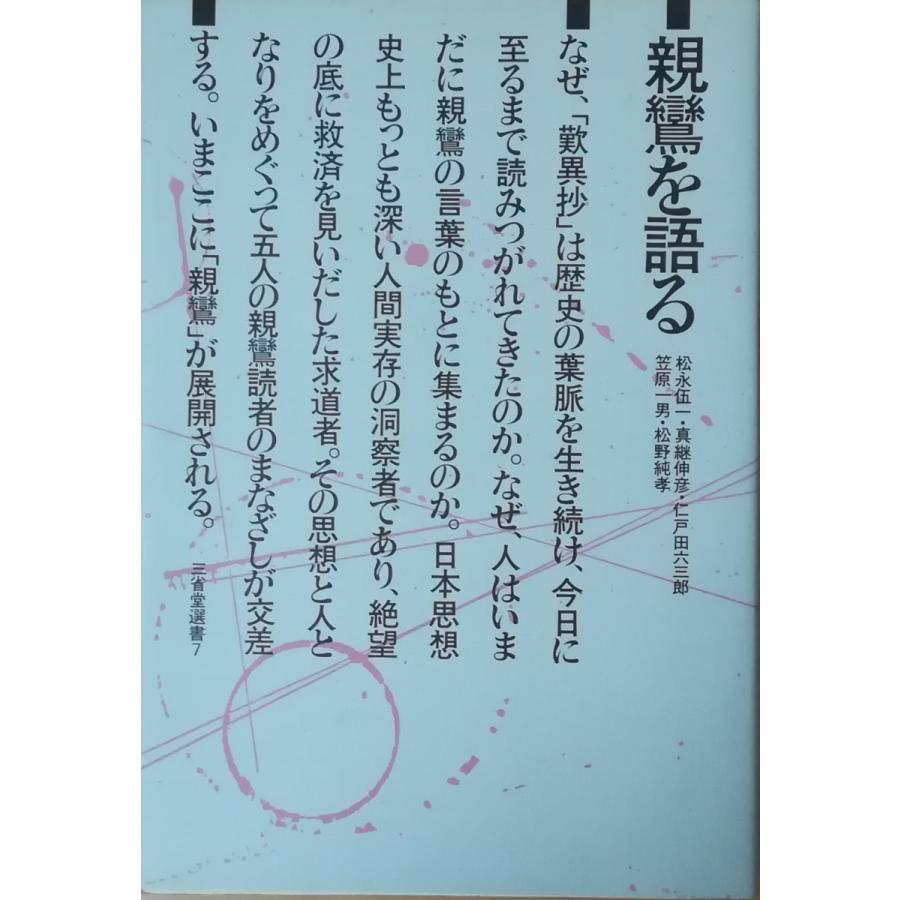 親鸞を語る
松永伍一・真継伸彦・仁戸田六三郎
笠原一男・松野純孝
なぜ、「歎異抄」は歴史の葉脈を生き続け、今日に
至るまで読みつがれてきたのか。なぜ、人はいま
だに親鸞の言葉のもとに集まるのか。日本思想
史上もっとも深い人間実存の洞察者であり、絶望
の底に救済を見いだした求道者。その思想と人と
なりをめぐって五人の親鸞読者のまなざしが交差
する。いまここに「親鸞」が展開される。
三省堂選書7